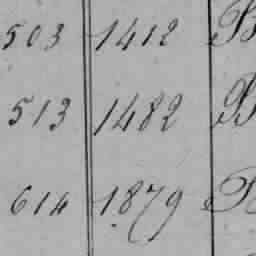 503 1412 B
513 1482 B
614 1879 B